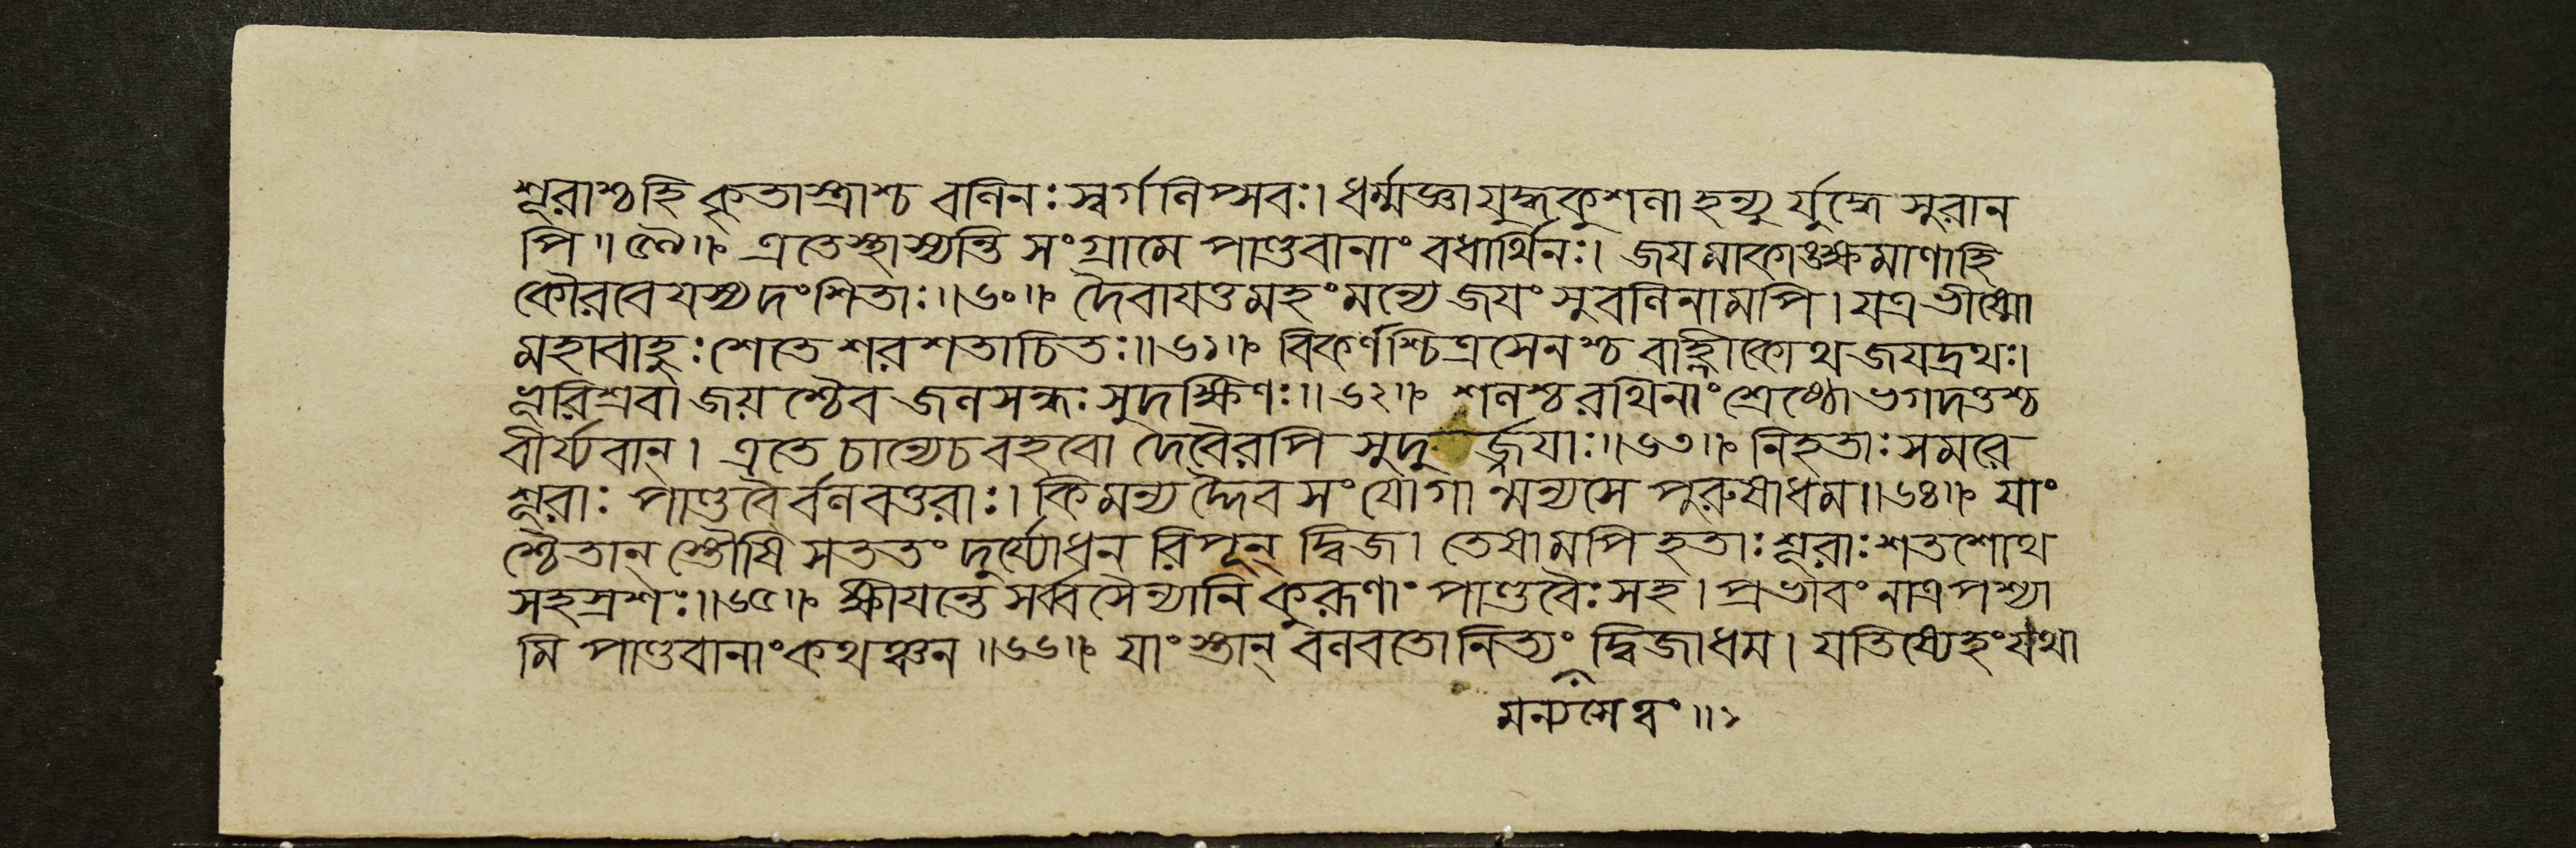 শূরাশ্চ হি কৃতাস্ত্রাশ্চ বলিনঃ স্বর্গলিপ্সবঃ। ধর্ম্মজ্ঞা যুদ্ধকুশলা হন্যু র্যুদ্ধে সুরান
পি॥৫৯॥ এতে স্থাস্যন্তি সংগ্রামে পাণ্ডবানাং বধার্থিনঃ। জয়মাকাঙ্ক্ষমাণাহি
কৌরবেয়স্য দংশিতাঃ॥৬০॥ দৈবায়ত্তমহং মন্যে জয়ং সুবলিনামপি। যত্র ভীষ্মো
মহাবাহুঃ শেতে শরশতাচিতঃ॥৬১॥ বিকর্ণশ্চিত্রসেনশ্চ বাহ্লিকোথ জয়দ্রথঃ।
ভূরিশ্রবা জয়শ্চৈব জলসন্ধঃ সুদক্ষিণঃ॥৬২॥ শলশ্চ রথিনাং শ্রেষ্ঠো ভগদত্তশ্চ
বীর্য্যবান্। এতে চান্যেচ বহবো দেবৈরপি সুদু র্জ্জয়াঃ॥৬৩॥ নিহতাঃ সমরে
শূরাঃ পাণ্ডবৈর্বলবত্তরাঃ। কিমন্য দ্দৈব সংযোগা ন্মন্যসে পুরুষাধম॥৬৪॥ যাং
শ্চৈতান্ স্তৌষি সততং দুর্য্যোধন রিপূন্ দ্বিজ। তেষামপি হতাঃ শূরাঃ শতশোথ
সহস্রশঃ॥৬৫॥ ক্ষীয়ন্তে সর্ব্বসৈন্যানি কুরূণাং পাণ্ডবৈঃ সহ। প্রভাবং নাত্র পশ্যা
মি পাণ্ডবানাং কথঞ্চন॥৬৬॥ যাংস্তান্ বলবতো নিত্যং দ্বিজাধম। যতিষ্যেহং যথা
মন্যসে ত্বং॥১